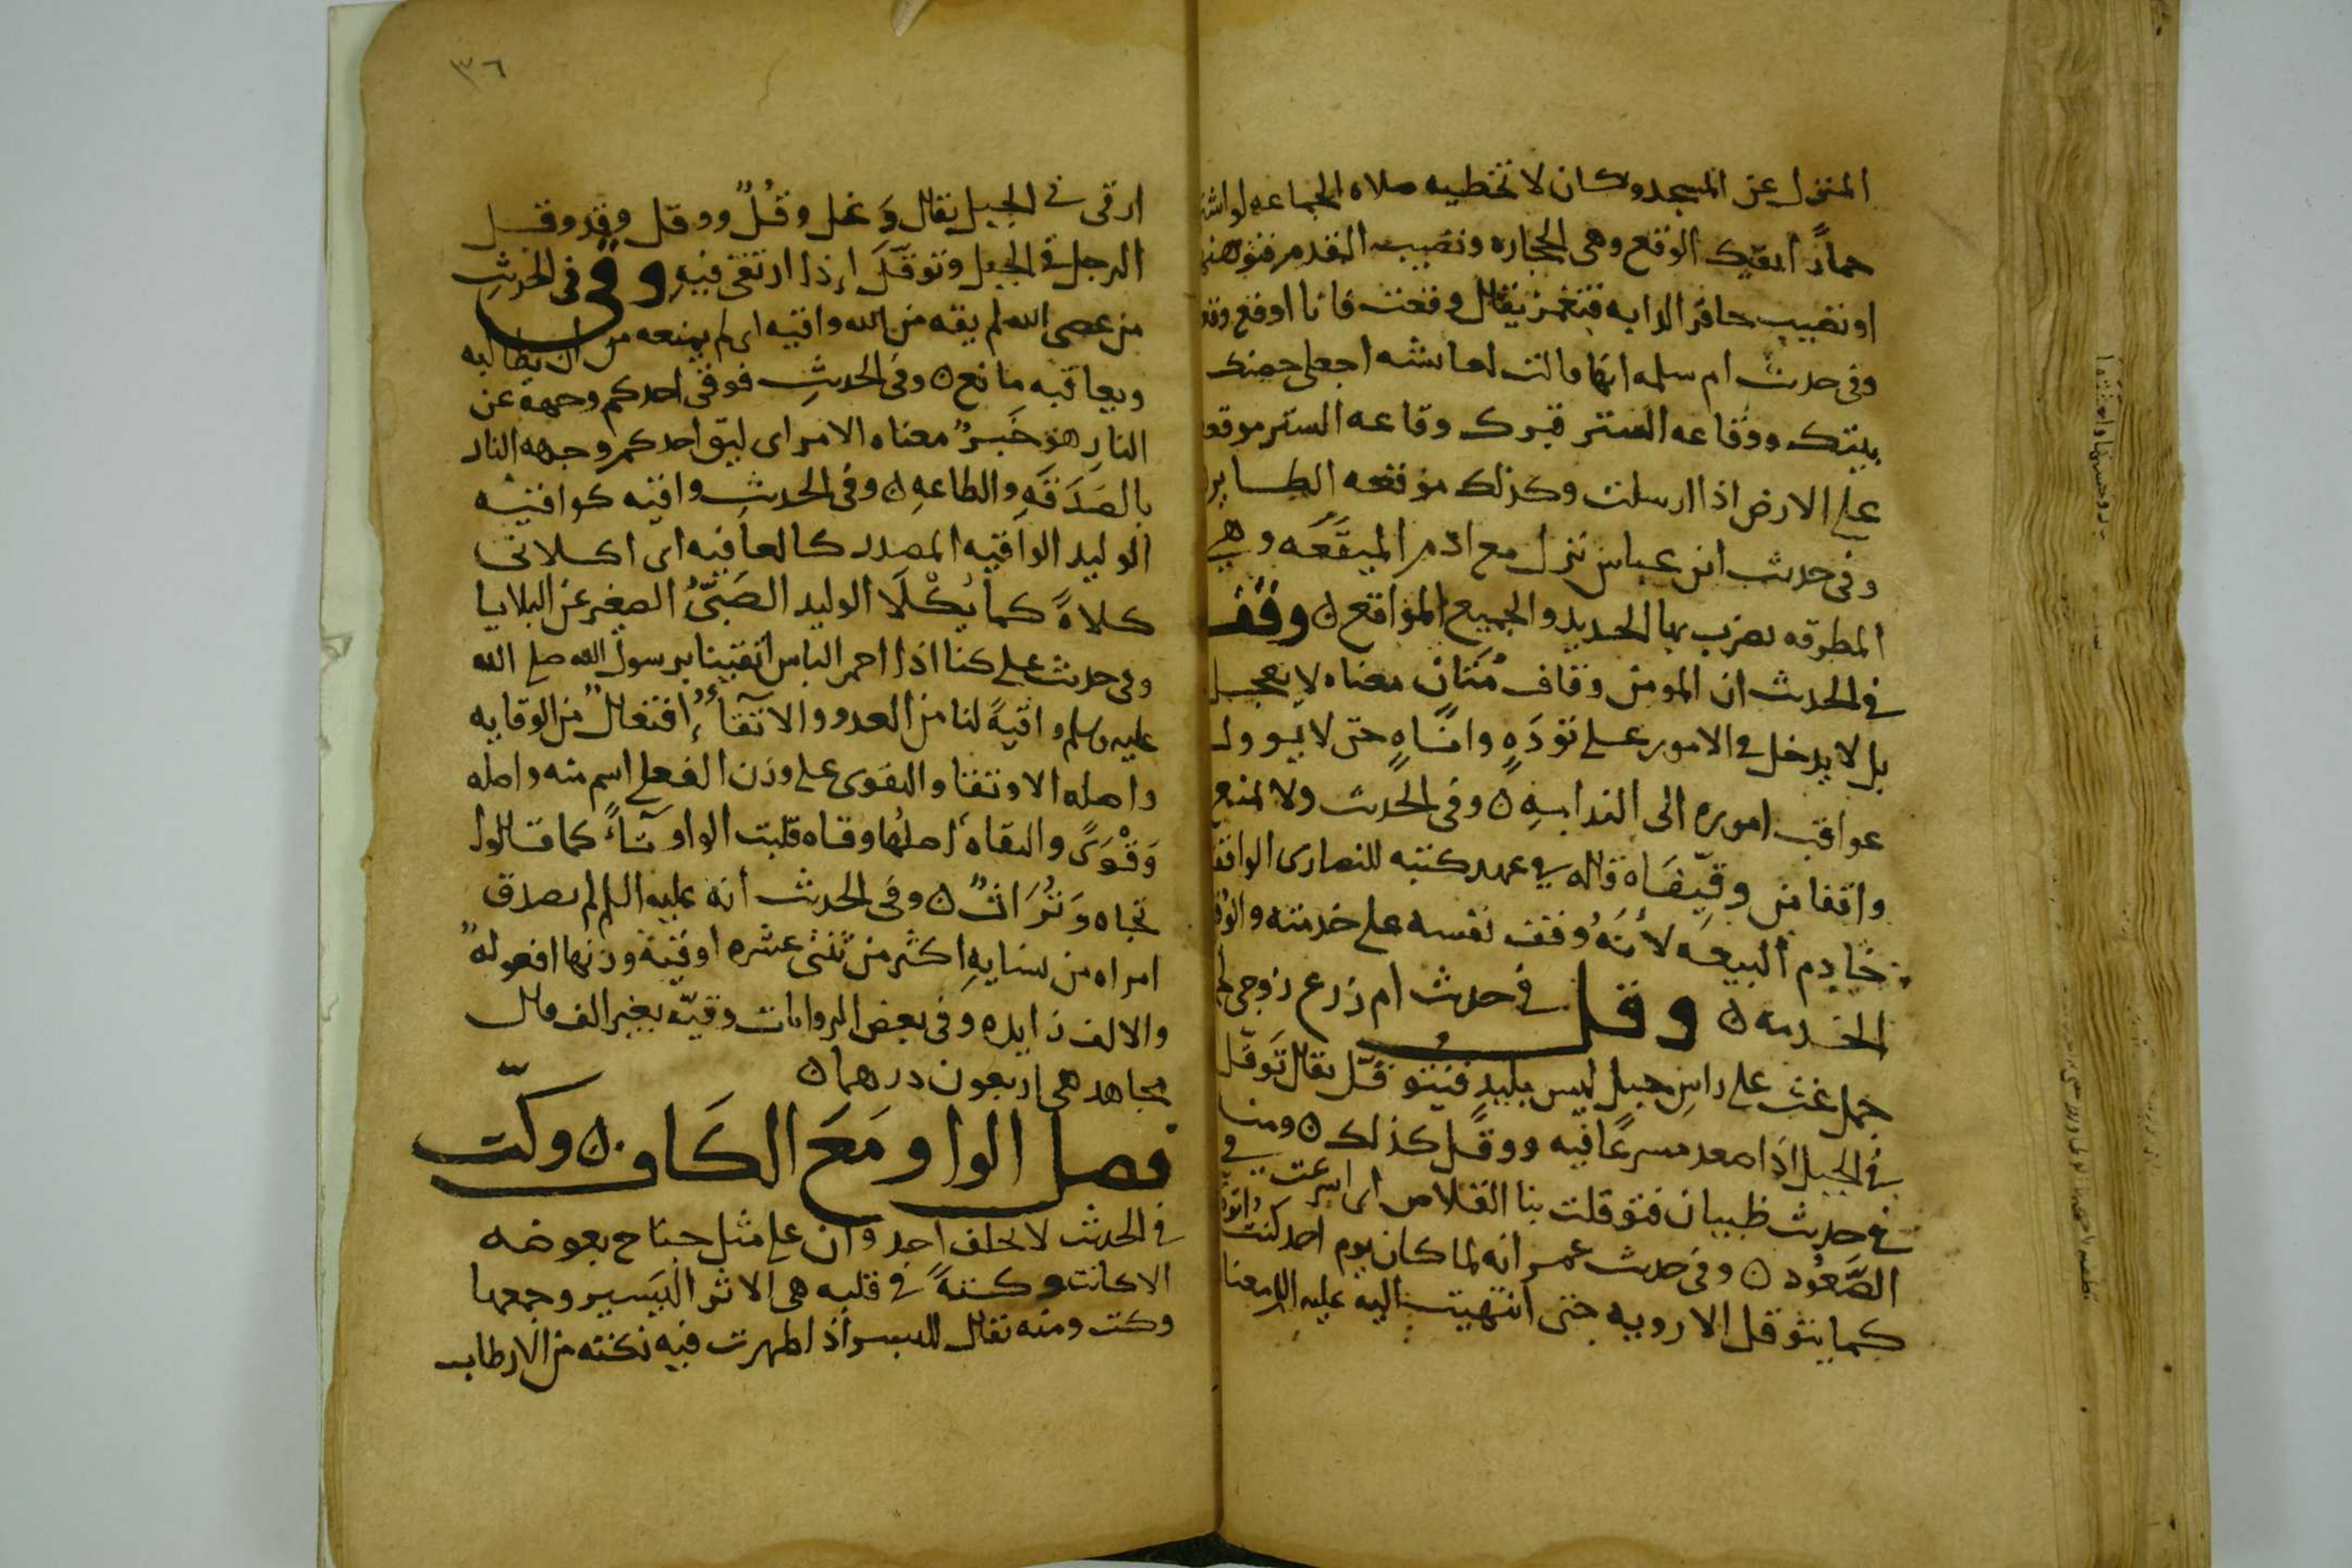 المنزل عن المسجد وكان لا تخطيه صلاه الجماعه لو اشتر
حمارًا يقيك الوقع وهى الحجاره ونصيب القدم فتوهنها
او نصيب حافر الدابه فتغمز يقال وقعت فانا اوقع وقعا
وفى حديث ام سلمه انها قالت لعائشه اجعلى حصنك
بيتك ووقاعه الستر قبرك وقاعه الستر موقعه
على الارض اذا ارسلت وكذلك موقعه الطاير
وفى حديث ابن عباس نزل مع ادم الميقَعَه وهى
المطرقه يضرب بها الحديد والجميع المواقع ن وقف
فى الحديث ان المومن وقاف مُتَانٍ معناه لا يعجل
بل لا يدخل فى الامور على تؤدَهٍ واناهٍ حتى لا يـوول
عواقب اموره الى الندامهِ ن وفى الحديث ولا يمنع
واقفا من وقِّيفَاه قاله فى عهد كتبه للنصارى الواقف
خادم البيعه لأنَهُ وقف نفسه على خدمته والوقف
الخدمه ن وقل فى حديث ام زرع زوجى لحم
جمل غث على راسِ جبل ليس بلبدٍ فيتوقّل يقال تَوقّل
فى الجبل اذا صعد مسرعًا فيه ووقل كذلك ن ومنه
فى حديث ظبيان فتوقلت بنا القلاص اى اسرعت فى
الصَّعُود ن وفى حديث عمر انه لما كان يوم احد كنتُ اتوقل
كما يتوقل الارويه حتى انتهيت اليه عليه السلم معناه
٣٦
ارقى فى الجبل يقال وَعَل وقُلٌ ووقل وقد وقـل
الرجل فى الجبل وتوقَّلَ إذا ارتقى فيه وقى فى الحديثِ
من عصى الله لم يقه من الله واقيه اى لم يمنعه من ان يطالبه
ويعاقبه مانع ن وفى الحديثِ فوقى احدكم وجهه عن
النارِ هو خَبرٌ معناه الامر اى ليق احدكم وجهه النار
بالصَدَقَهِ والطاعهِ ن وفى الحديثِ واقيه كواقيـه
الوليد الواقيه المصدر كالعافيه اى اكلانى
كلاهً كما يُكْلَا الوليد الصَبيُّ الصغير عن البلايا
وفى حديث على كنا اذا احمر الباس اتقينا برسول الله صلى الله
عليه وسلم واقيهً لنا من العدو والاتقآءُ افتعالٌ من الوقايه
واصله الاوتقا والتقوى على وزن الفعلى اسم منه واصله
وَقْوَىً والتقاه اصلُها وقاه قلبت الواو تاءً كما قالوا
تجاه وَتُرَاثٌ ن وفى الحديث انه عليه السلم لم يصدق
امراه من نسايهِ اكثر من ثنتى عشره اوقيّة وزنها افعولهٌ
والالف زايده وفى بعض الروايات وقيّه بغير الف قال
مجاهد هى اربعون درهما ن
فصل الواو مَعَ الكَاف ن وكتَ
فى الحديث لا يحلف احد وان على مثل جناح بعوضه
الا كانت وكتهً فى قلبه هى الاثر اليَسير وجمعها
وكت ومنه يقال للبسر اذا ظهرت فيه نكته من الارطاب